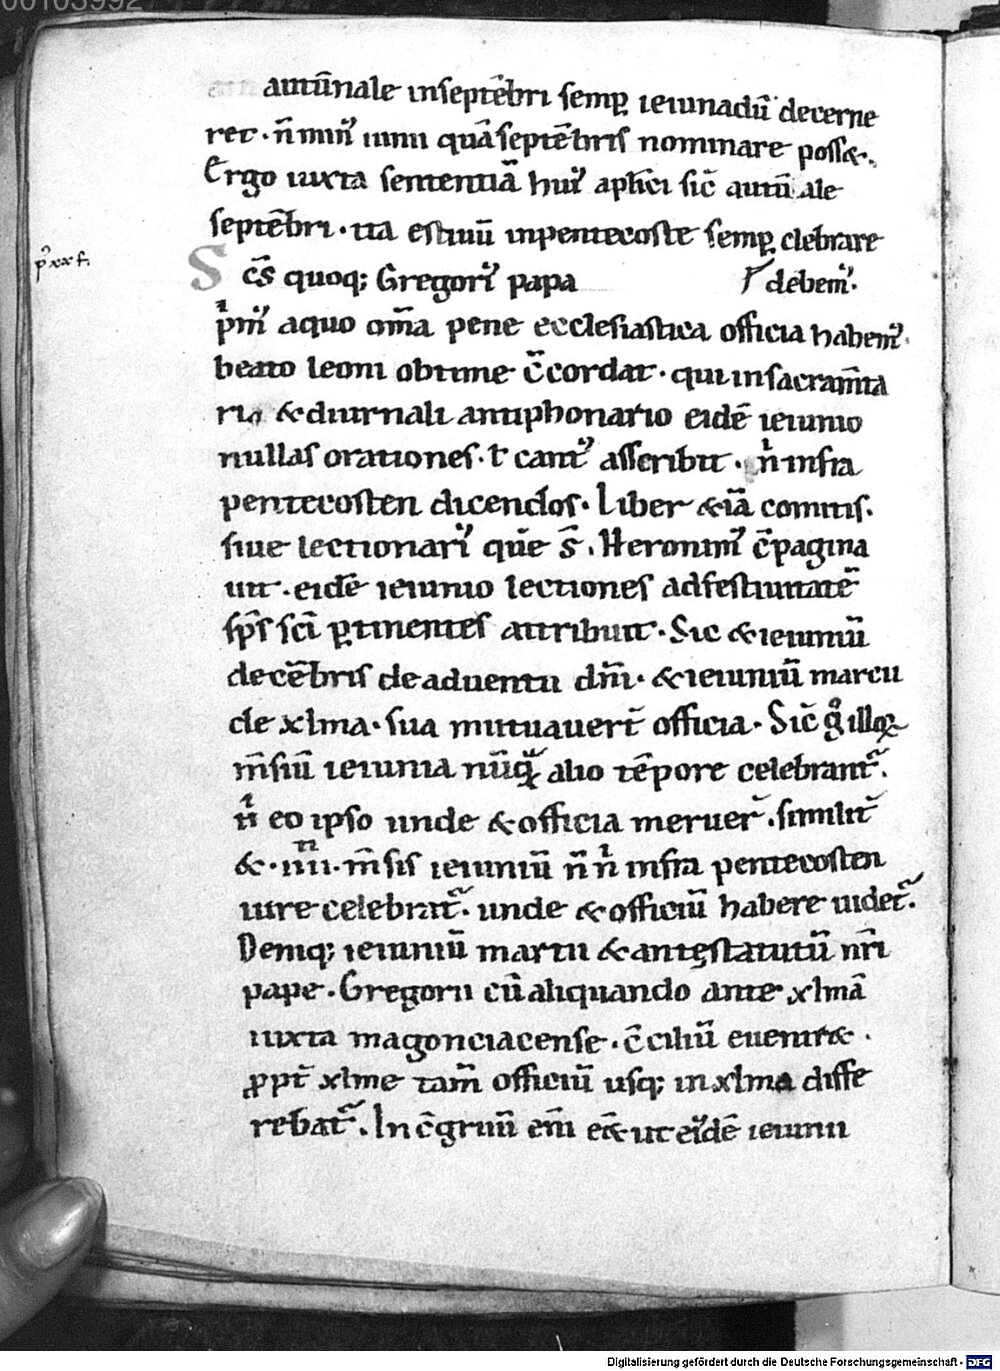 00103992
autūnale inseptēbri semꝑ ieiunādū decerne
ret · n̄ min᷒ iunii quā septēbris nominare possꝫ.
Ergo iuxta sententiā hui᷒ aplici sic̄ autūale
septēbri · ita estiuū inpentecoste semꝑ clebrare
p᷒xxf.
Sc̄s quoq; Gregori᷒ papa debem᷒.
pͥm᷒ aquo om̄a pene ecclesiastica officia habem᷒.
beato leoni obtime c̄cordat · qui insacram̄ta
rio & diurnali antiphonario eidē ieiunio
nullas orationes · ł cant᷒ asscribit · nͥ infra
pentecosten dicendos · Liber &iā comitis.
siue lectionari᷒ quē s̄. Heronim᷒ c̄pagina
uit · eidē ieiunio lectiones adfestiuitatē
sp̄s sc̄i ꝑtinentes attribuit · Sic & ieiuniū
decēbris de aduentu dn̄i · & ieiuniū marcii
de xlma · sua mutuauert̄ officia · Sic̄ gͦ illoꝝ
m̄siū ieiunia nūqͣ alio tēpore celebrant᷒.
nͥ eo ipso unde & officia meruer̄ · similit̄
& · iiii · m̄sis ieiuniū n̄ nͥ infra pentecosten
iure celebrat᷒ · unde & officiū habere uidet᷒.
Deniq; ieiuniū martii & antestatutū nr̄i
pape · Gregorii cū aliquando ante xlmā
iuxta magonciacense · c̄ciliū eueniret ·
ꝓpt̄ xlme tam̄ officiū usq; in xlma diffe
rebat᷒. Inc̄gruū em̄ e& ut eidē ieiunii
Digitalisierung gefördert durch die Deutsche Forschungsgemeinschaft · DFG